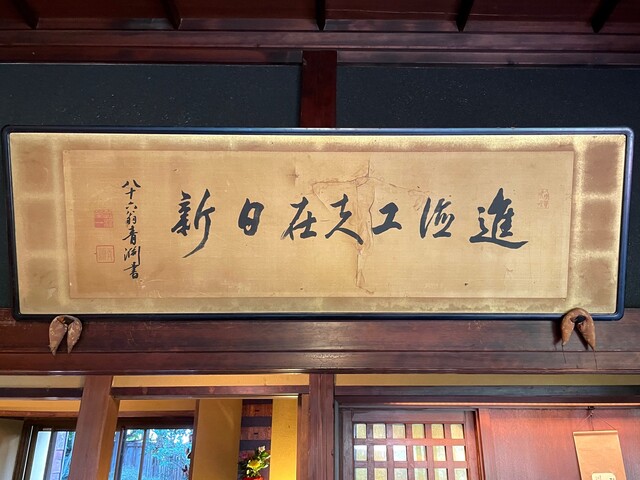 進徳工夫在日新
八十六翁青淵書